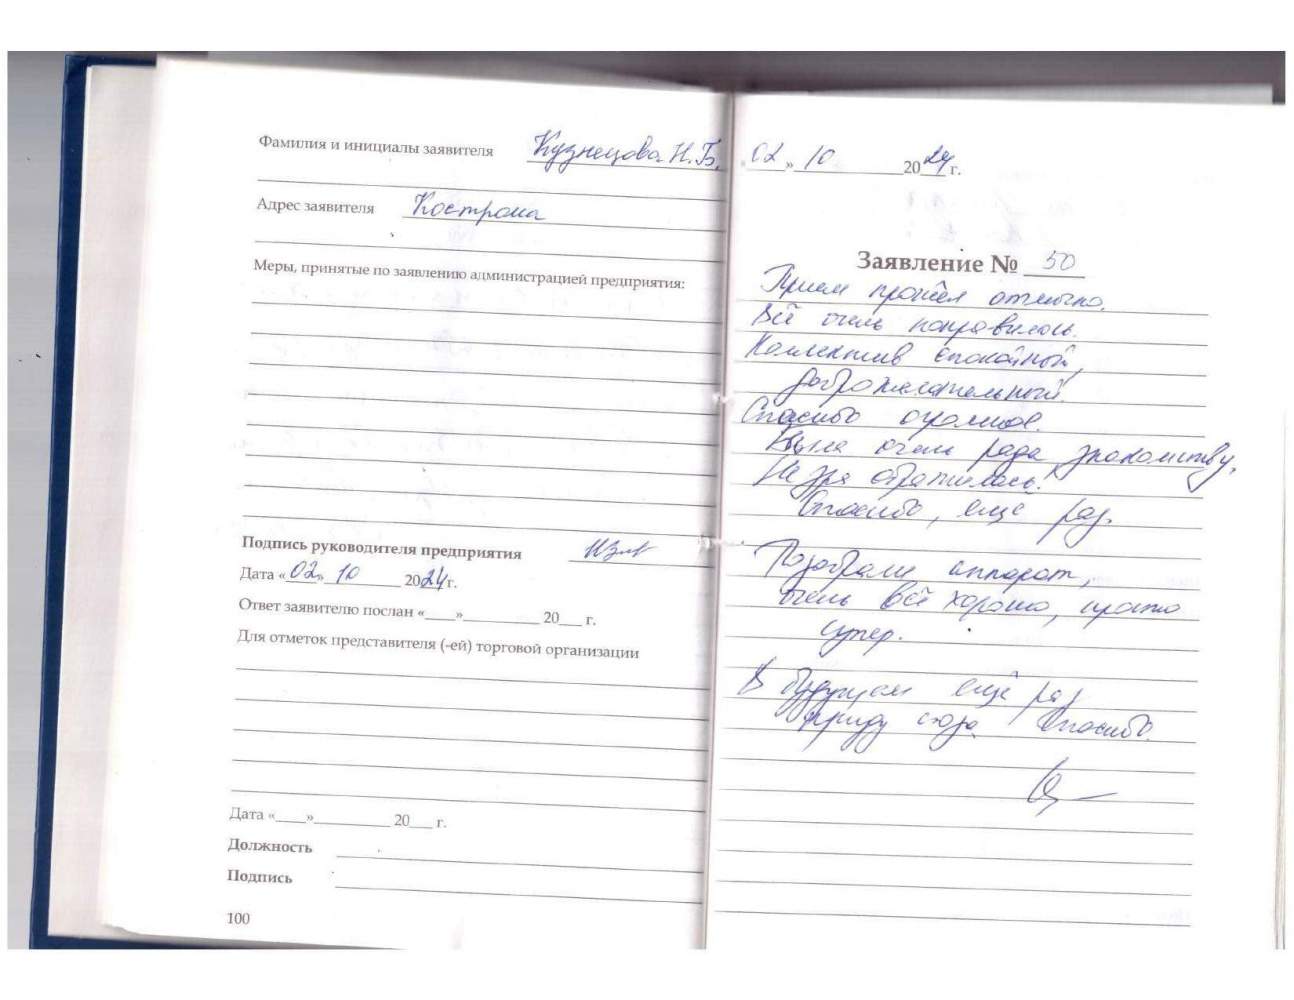 Фамилия и инициалы заявителя Кузнецова Н.Б.
Адрес заявителя Кострома
Меры, принятые по заявлению администрацией предприятия:
Подпись руководителя предприятия
Дата «02» 10 2024г.
Ответ заявителю послан «____»__________ 20___ г.
Для отметок представителя (-ей) торговой организации
Дата «____»__________ 20___ г.
Должность
Подпись
100
«02» 10 2024г.
Заявление № 50
Прием прошёл отлично.
Всё очень понравилось.
Коллектив спокойный,
доброжелательный.
Спасибо огромное.
Была очень рада знакомству,
Не зря обратилась.
Спасибо, ещё раз.
Подобрали аппарат,
очень всё хорошо, просто
супер.
В будущем ещё раз
приду сюда. Спасибо.